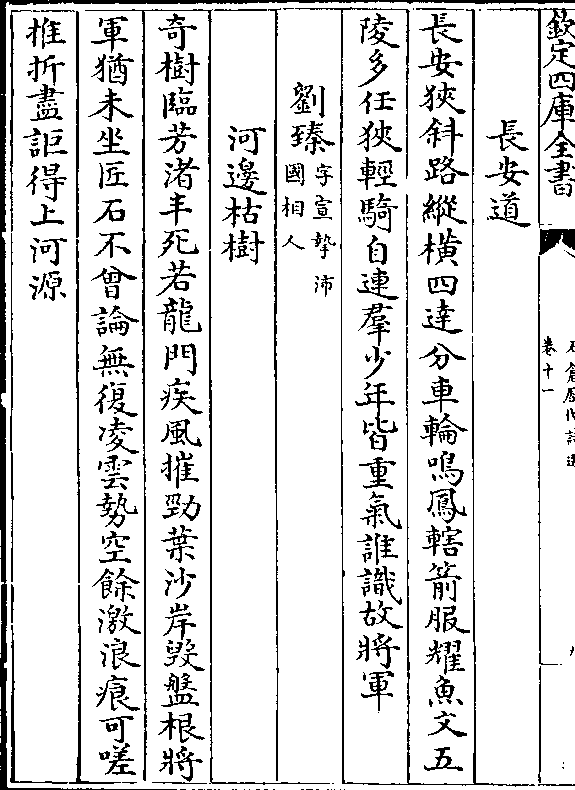 欽定四庫全書
卷十一
長安道
長安狹斜路縱橫四達分車輪鳴鳳轄箭服耀魚文五
陵多任狹輕騎自連羣少年皆重氣誰識故將軍
劉臻字宣摯沛
國相人
河邊枯樹
奇樹臨芳渚半死若龍門疾風摧勁葉沙岸毀盤根將
軍猶未坐匠石不曾論無復凌雲勢空餘激浪痕可嗟
椎折盡詎得上河源